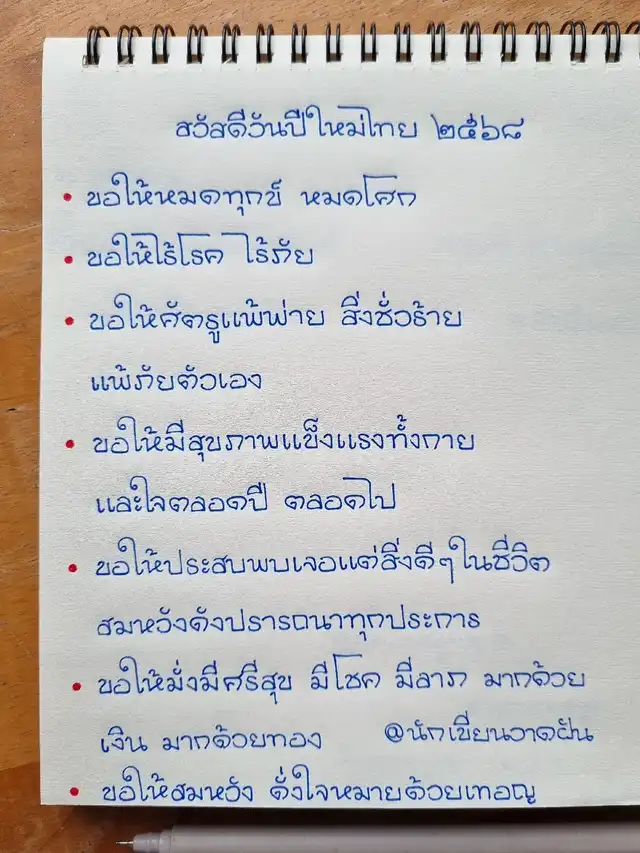 สวัสดีวันปีใหม่ไทย ๒๕๖๘
• ขอให้หมดทุกข์ หมดโศก
• ขอให้ไร้โรค ไร้ภัย
• ขอให้ศัตรูแพ้พ่าย สิ่งชั่วร้าย
แพ้ภัยตัวเอง
• ขอให้มีสุขภาพแข็งแรงทั้งกาย
และใจตลอดปี ตลอดไป
• ขอให้ประสบพบเจอแต่สิ่งดีๆในชีวิต
สมหวังดังปรารถนาทุกประการ
• ขอให้มั่งมีศรีสุข มีโชค มีลาภ มากด้วย
เงิน มากด้วยทอง @นักเขียนวาดฝัน
• ขอให้สมหวัง ดั่งใจหมายด้วยเทอญ